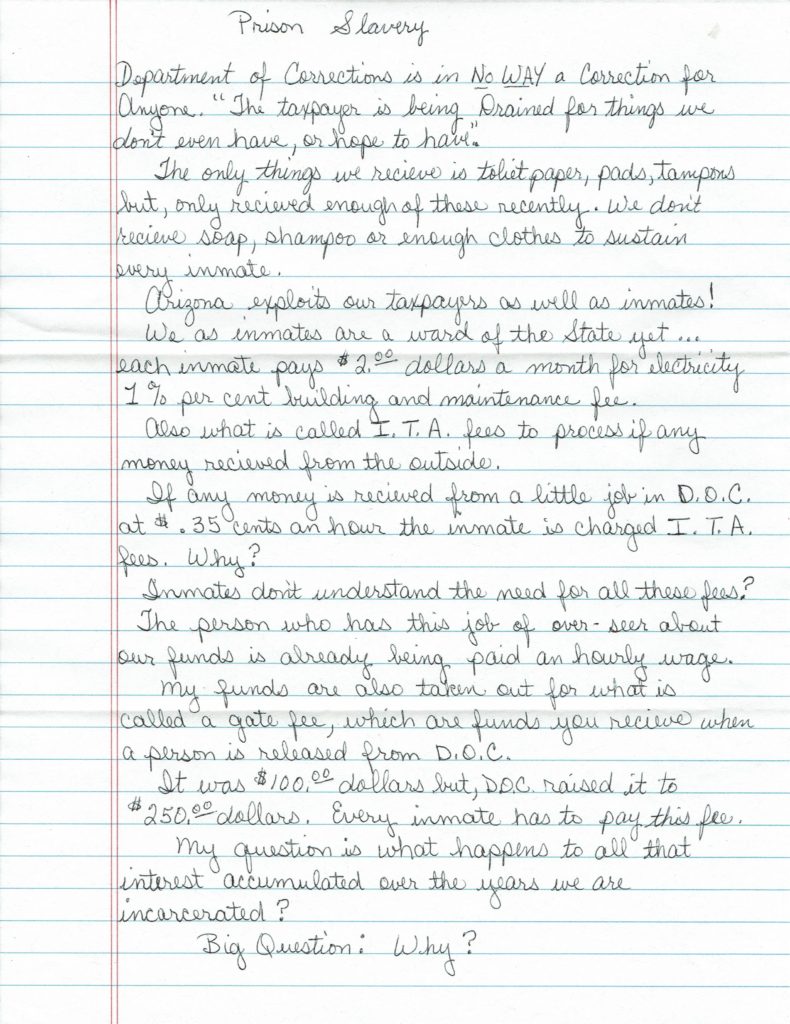 Prison Slavery
Department of Corrections is in NO WAY a Correction for
Anyone. "The taxpayer is being Drained for things we
don't even have, or hope to have".
The only things we recieve is toliet paper, pads, tampons
but, only recieved enough of these recently. We don't
recieve soap, shampoo or enough clothes to sustain
every inmate.
Arizona exploits our taxpayers as well as inmates!
We as inmates are a ward of the State yet...
each inmate pays $2.00 dollars a month for electricity
1% per cent building and maintenance fee.
Also what is called I.T.A. fees to process if any
money recieved from the outside.
If any money is recieved from a little job in D.O.C.
at $.35 cents an hour the inmate is charged I.T.A.
fees. Why?
Inmates don't understand the need for all these fees?
The person who has this job of over-seer about
our funds is already being paid an hourly wage.
My funds are also taken out for what is
called a gate fee, which are funds you recieve when
a person is released from D.O.C.
It was $100.00 dollars but, D.O.C. raised it to
$250.00 dollars. Every inmate has to pay this fee.
My question is what happens to all that
interest accumulated over the years we are
incarcerated?
Big Question: Why?